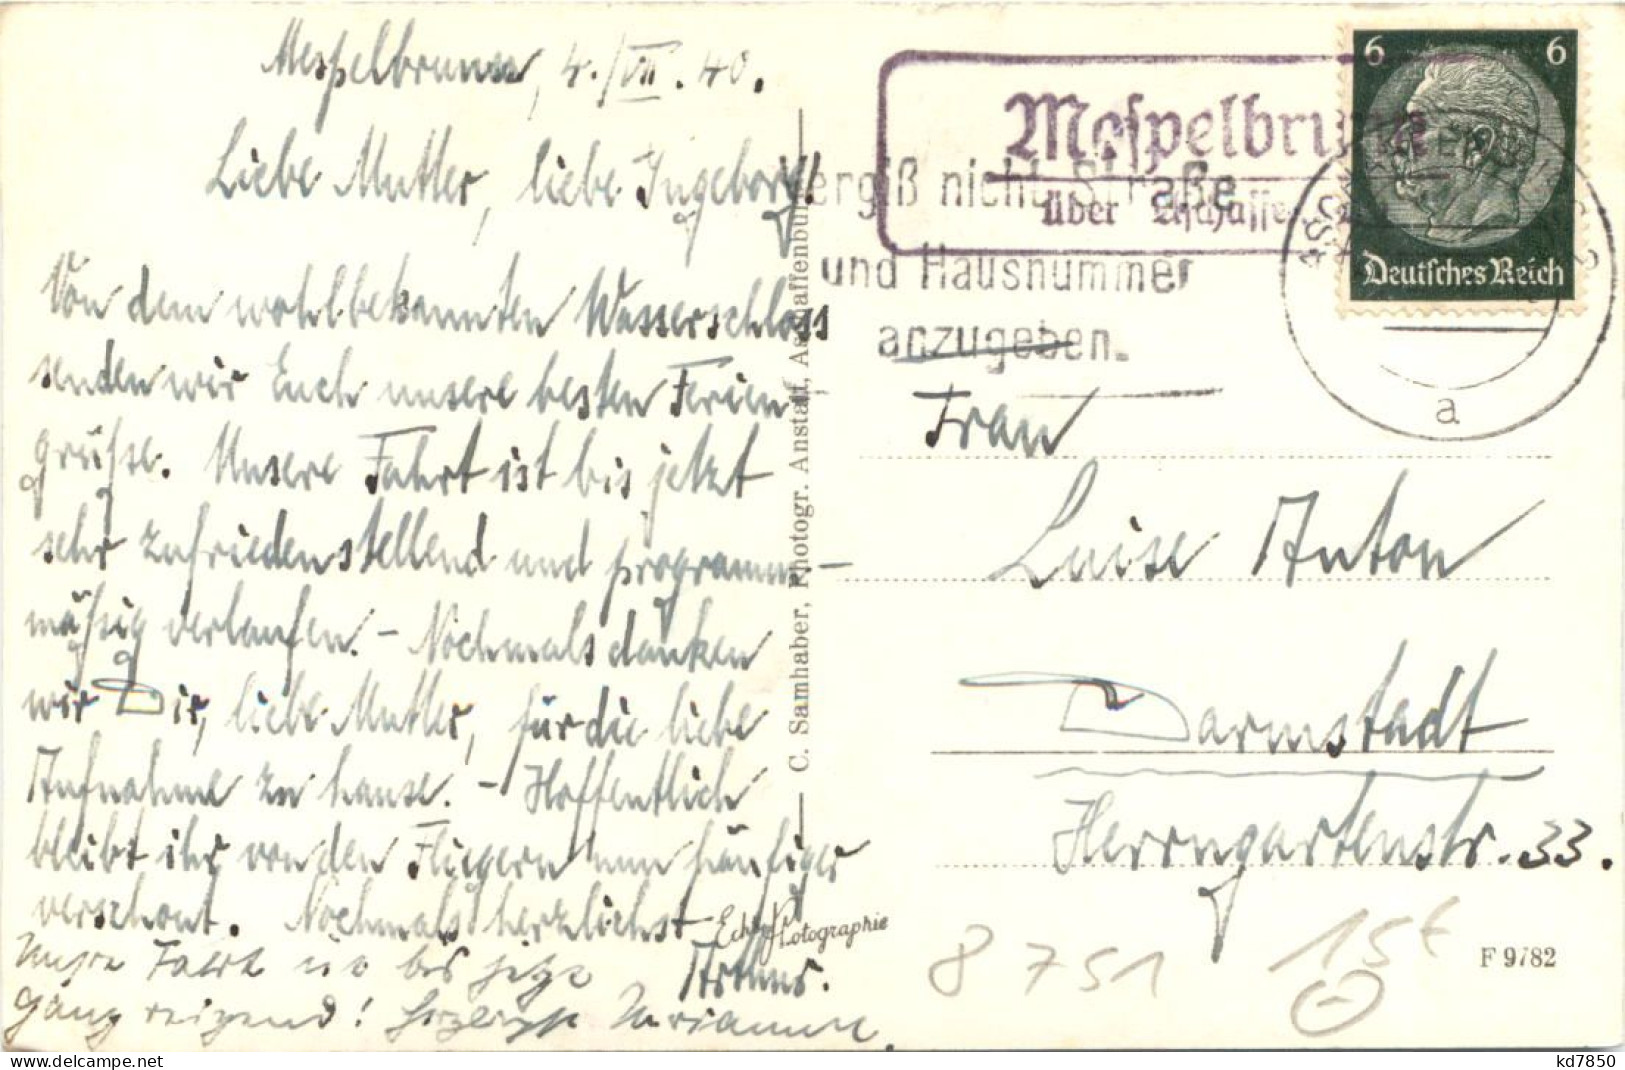 Mespelbrunn, 4./VII.40.
Liebe Mutter, liebe Ingeborg!
Von dem wohlbekannten Wasserschloss
senden wir Euch unsere besten Ferien
grüße. Unsere Fahrt ist bis jetzt
sehr zufriedenstellend und programm-
mäßig verlaufen. – Nochmals danken
wir Dir, liebe Mutter, für die liebe
Aufnahme zu hause. – Hoffentlich
bleibt ihr von den Fliegern nun häufiger
verschont. Nochmals herzlichst
Unsre Fahrt bis jetzt
ganz reizend! Herzlichst Marianne.
C. Samhaber, Photogr. Anstalt, Aschaffenburg
Echte Photographie
Mespelbrunn
über Aschaffenburg
Vergiß nicht Straße
und Hausnummer
anzugeben.
6 6
Deutsches Reich
a
Frau
Luise Anton
Darmstadt
Herrngartenstr. 33.
8751
15€
F 9782
www.delcampe.net
kd7850